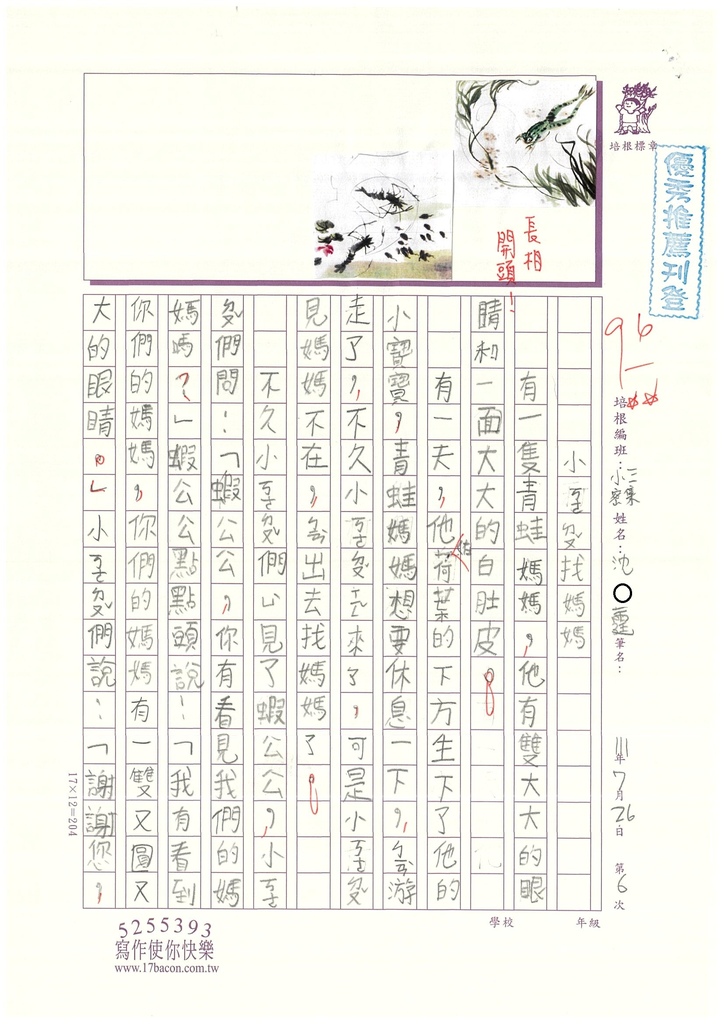 培根標章
優秀推薦刊登
長相
開頭！
96
培根編班：小三集密 姓名：沈○霆 筆名： 111年7月26日 第6次
學校 年級
小ㄎㄜㄉㄡ找媽媽
有一隻青蛙媽媽，他有雙大大的眼
睛和一面大大的白肚皮。
有一天，他在荷葉的下方生下了他的
小寶寶，青蛙媽媽想要休息一下，ㄍㄤ游
走了，不久小ㄎㄜㄉㄡ ㄒㄧㄥ來了，可是小ㄎㄜㄉㄡ
見媽媽不在，ㄐㄧㄡ出去找媽媽了。
不久小ㄎㄜㄉㄡ們ㄩ見了蝦公公，小ㄎㄜ
ㄉㄡ們問：「蝦公公，你有看見我們的媽
媽嗎？」蝦公公點點頭說：「我有看到
你們的媽媽，你們的媽媽有一雙又圓又
大的眼睛。」小ㄎㄜㄉㄡ們說：「謝謝您，
17×12=204
5255393
寫作使你快樂
www.17bacon.com.tw